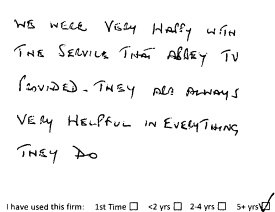 WE WERE VERY HAPPY WITH
THE SERVICE THAT ABBEY TV
PROVIDED. THEY ARE ALWAYS
VERY HELPFUL IN EVERYTHING
THEY DO
I have used this firm: 1st Time ☐ <2 yrs ☐ 2-4 yrs ☐ 5+ yrs ☑